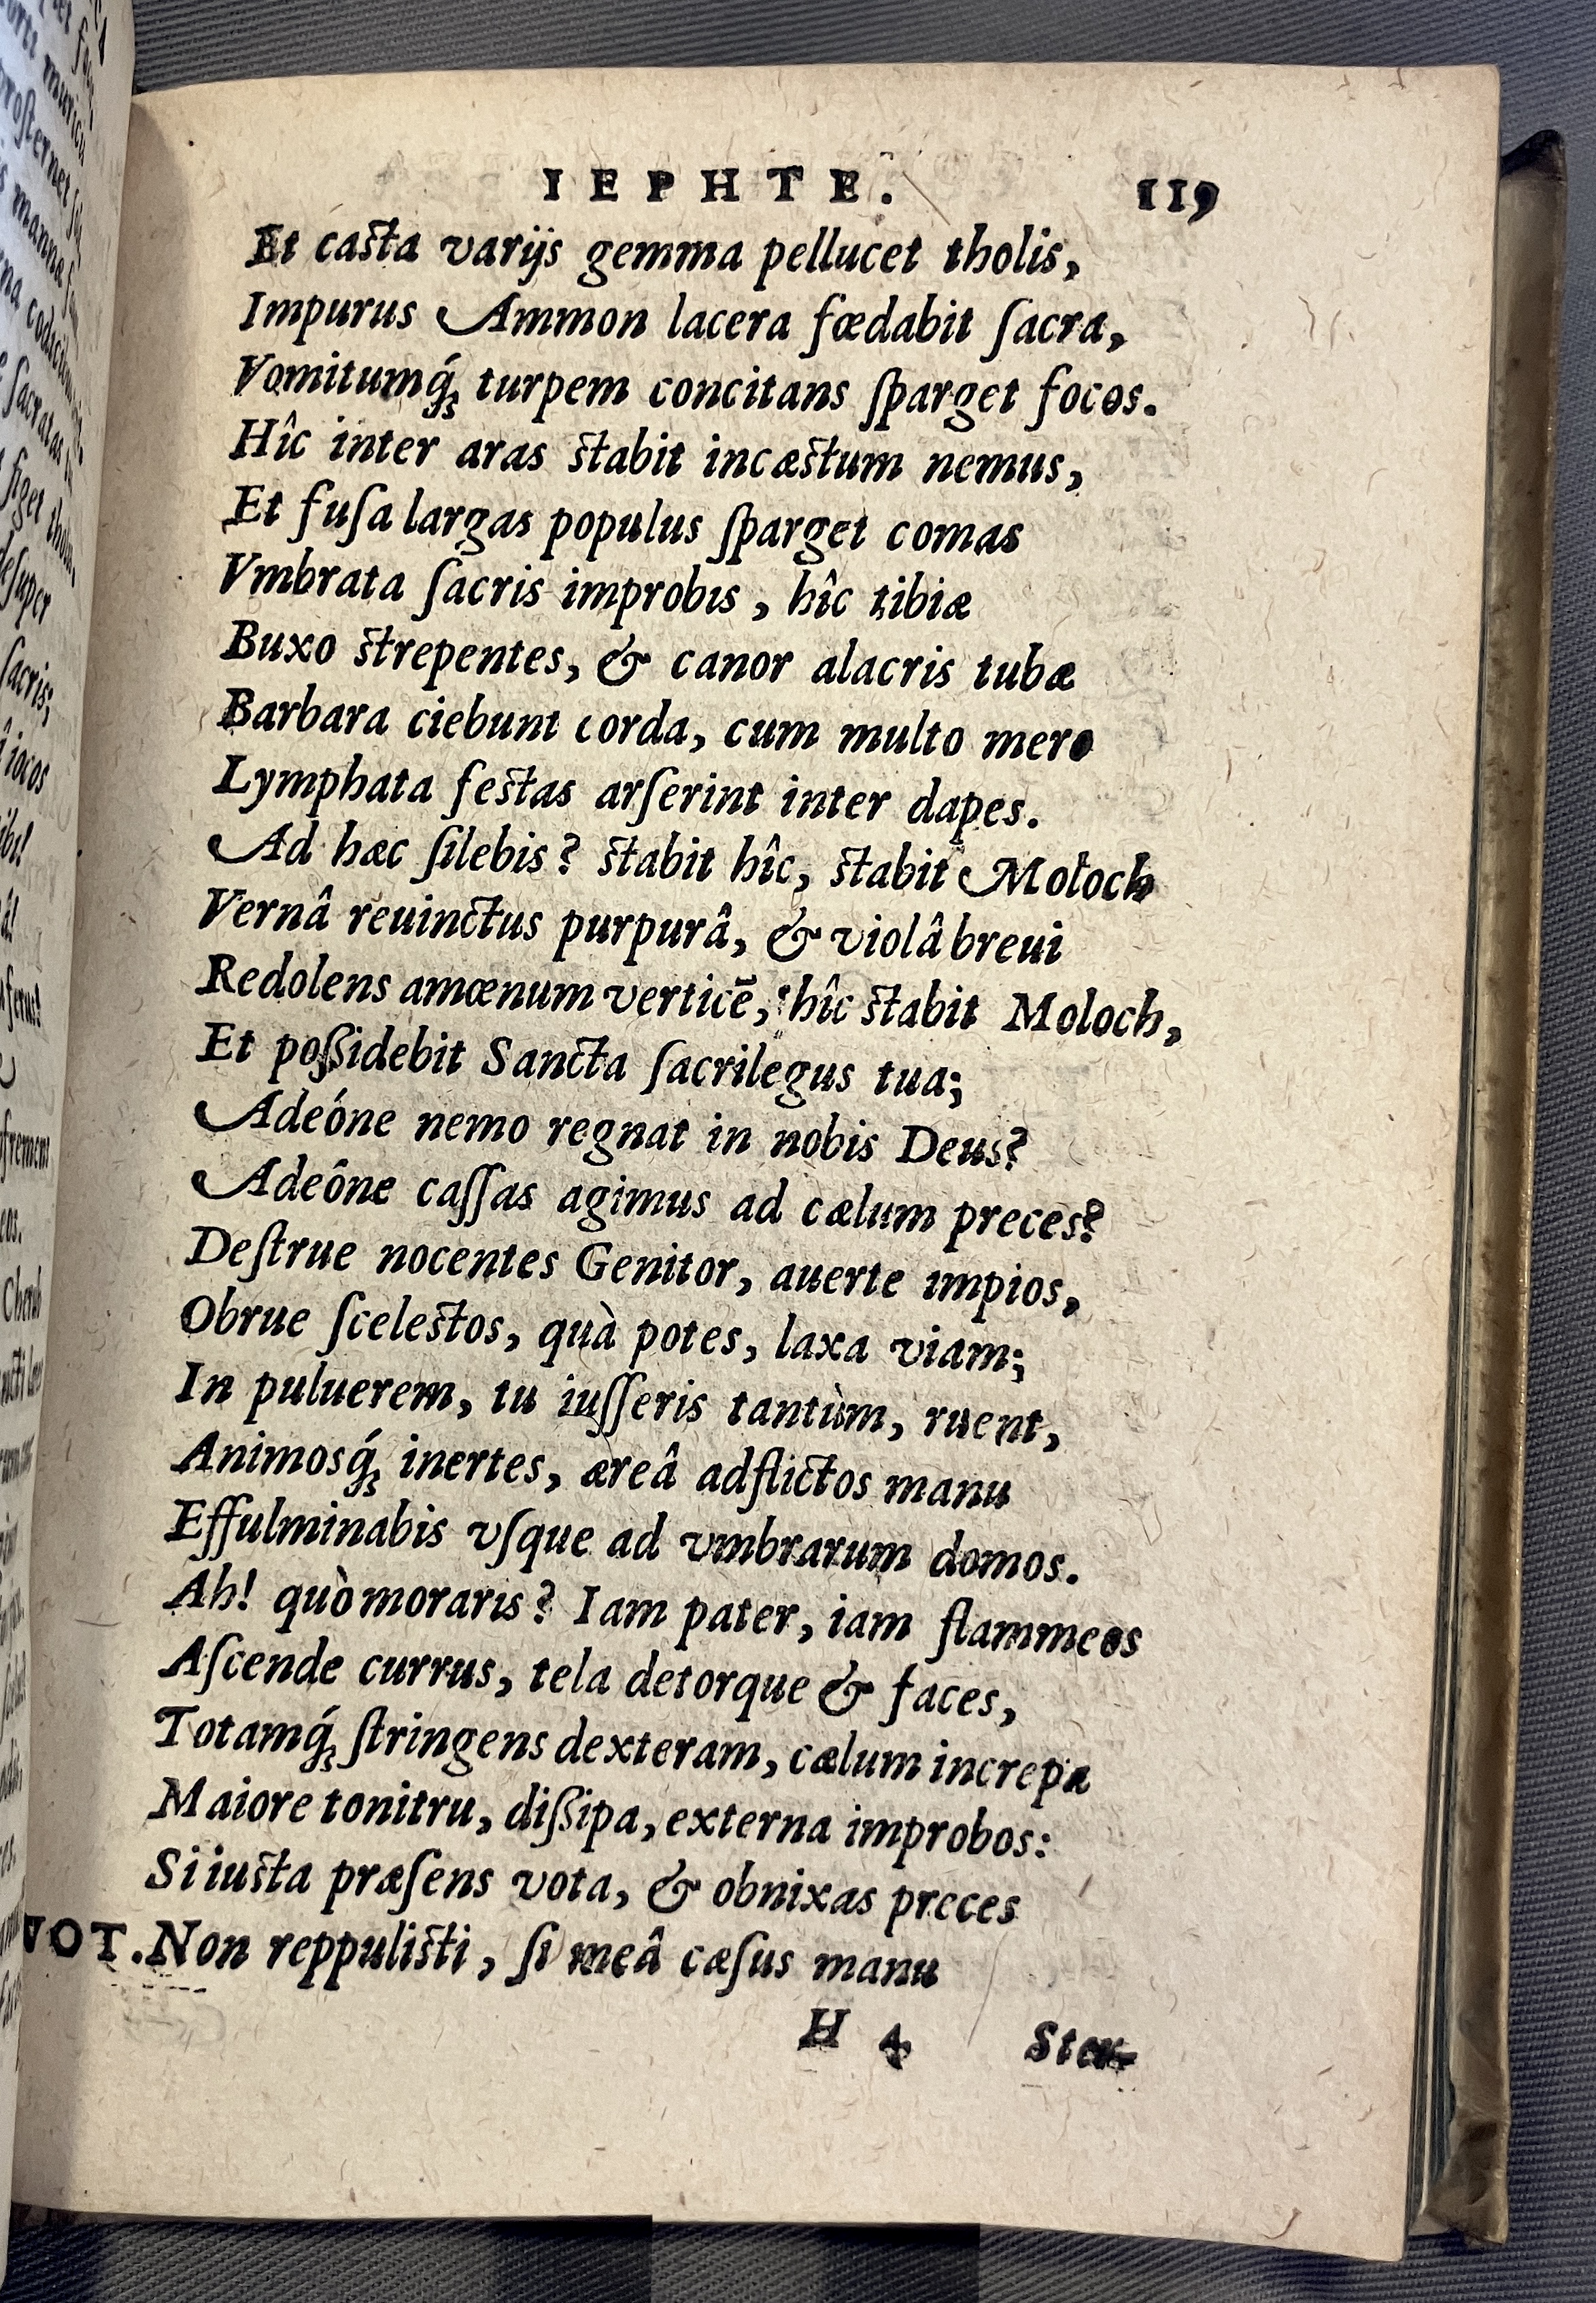 IEPHTE. 119
Et casta varijs gemma pellucet tholis,
Impurus Ammon lacera fœdabit ſacra,
Vomitumq́; turpem concitans ſparget focos.
Hîc inter aras stabit incæstum nemus,
Et fuſa largas populus ſparget comas
Vmbrata ſacris improbis, hîc tibiæ
Buxo strepentes, & canor alacris tubæ
Barbara ciebunt corda, cum multo mero
Lymphata festas arſerint inter dapes.
Ad hæc ſilebis? stabit hîc, stabit Moloch
Vernâ reuinctus purpurâ, & violâ breui
Redolens amœnum verticē, hîc stabit Moloch,
Et poßidebit Sancta ſacrilegus tua;
Adeóne nemo regnat in nobis Deus?
Adeône caſſas agimus ad cælum preces?
Deſtrue nocentes Genitor, auerte impios,
Obrue ſcelestos, quà potes, laxa viam;
In puluerem, tu iuſſeris tantùm, ruent,
Animosq́; inertes, æreâ adflictos manu
Effulminabis vſque ad vmbrarum domos.
Ah! quò moraris? Iam pater, iam flammeos
Aſcende currus, tela detorque & faces,
Totamq́; ſtringens dexteram, cælum increpa
Maiore tonitru, dißipa, externa improbos:
Si iusta præſens vota, & obnixas preces
VOT. Non reppulisti, ſi meâ cæſus manu
H 4 Ster-